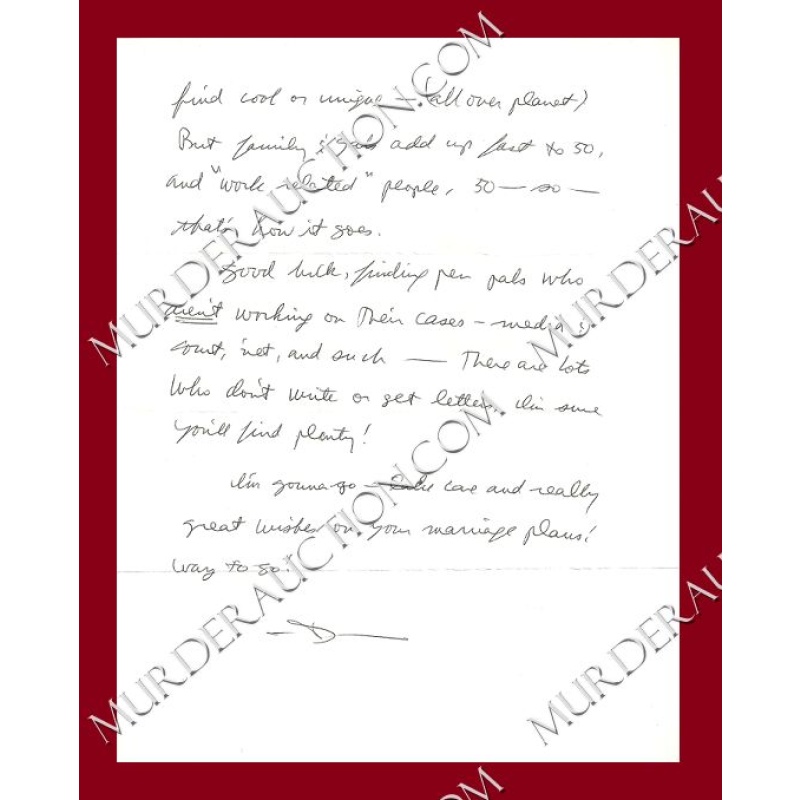 find cool or unique — (all over planet)
But family & add up fast to 50,
and "work related" people, 50 — so —
that's how it goes.
Good luck, finding pen pals who
aren't working on their cases — media &
court, 'net, and such — There are lots
who don't write or get letters. I'm sure
you'll find plenty!
I'm gonna go — take care and really
great wishes on your marriage plans!
Way to go!
—D—
MURDERAUCTION.COM
MURDERAUCTION.COM
MURDERAU
MURDERAU